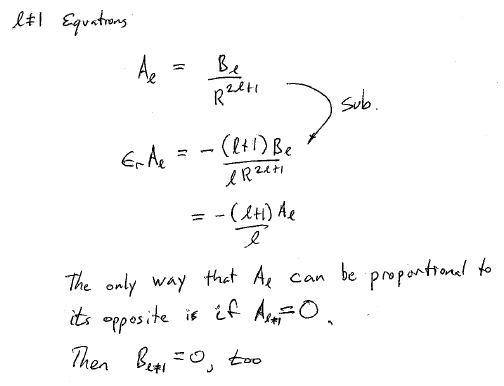 l≠1 Equations
A_l = B_l / R^{2l+1}
Sub.
ϵ_r A_l = -(l+1) B_l / l R^{2l+1}
= -(l+1) A_l / l
The only way that A_l can be proportional to
its opposite is if A_{l≠1}=0.
Then B_{l≠1}=0, too